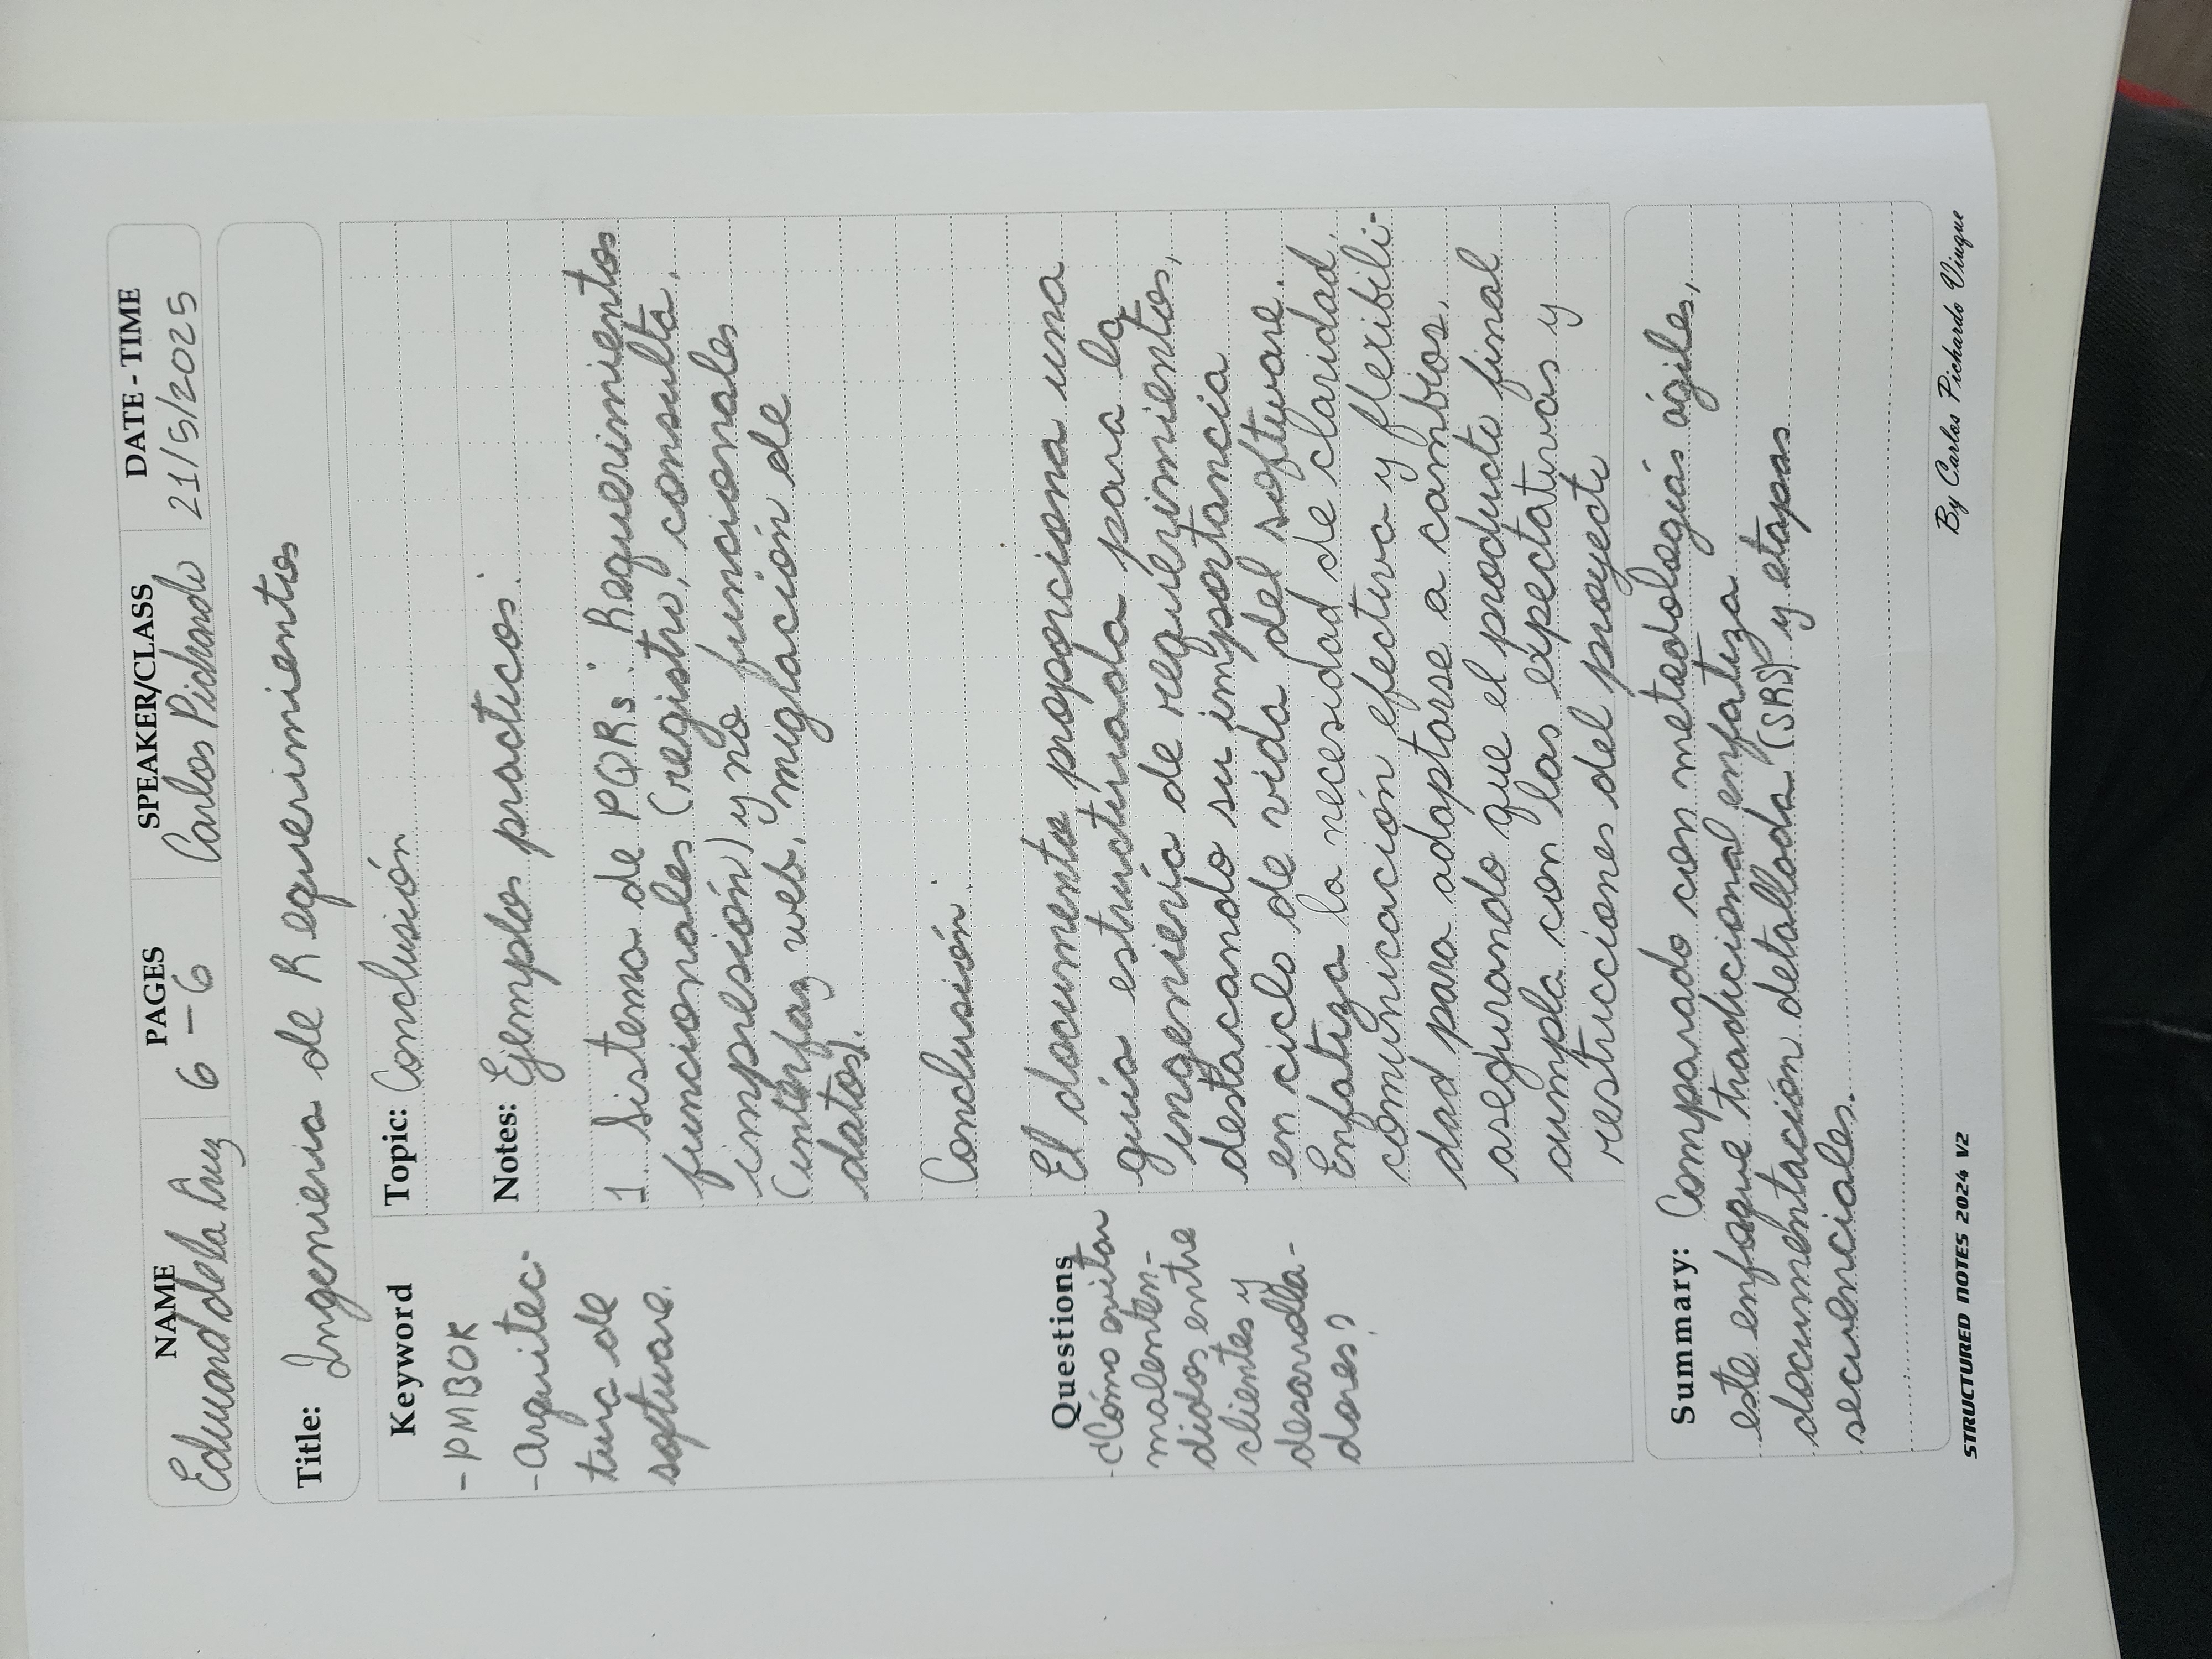 NAME PAGES SPEAKER/CLASS DATE - TIME
Edward de la Cruz 6 - 6 Carlos Pichardo 21/5/2025
Title: Ingenieria de Requerimientos
Keyword
- PMBOK
- Arquitec-
tura de
software.
Topic: Conclusión
Notes: Ejemplos practicos:
1. Sistema de PQRs: Requerimientos
funcionales (registro, consulta,
impresión) y no funcionales
(interfaz web, migración de
datos).
Conclusión:
El documento proporciona una
guía estructurada para la
ingeniería de requerimientos,
destacando su importancia
en ciclo de vida del software.
Enfatiza la necesidad de claridad,
comunicación efectiva y flexibili-
dad para adaptarse a cambios,
asegurando que el producto final
cumpla con las expectativas y
restricciones del proyecto
Questions
- ¿Cómo evitar
malenten-
didos entre
clientes y
desarrolla-
dores?
Summary: Comparado con metodologías ágiles,
este enfoque tradicional enfatiza
documentación detallada (SRS) y etapas
secuenciales.
STRUCTURED NOTES 2024 V2
By Carlos Pichardo Viuque